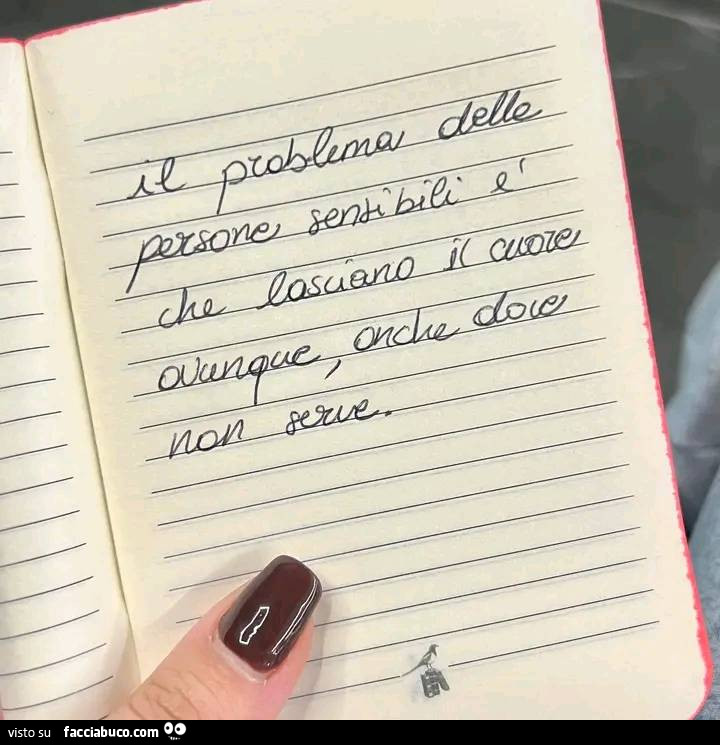 il problema delle
persone sensibili e'
che lasciano il cuore
ovunque, anche dove
non serve.
visto su facciabuco.com